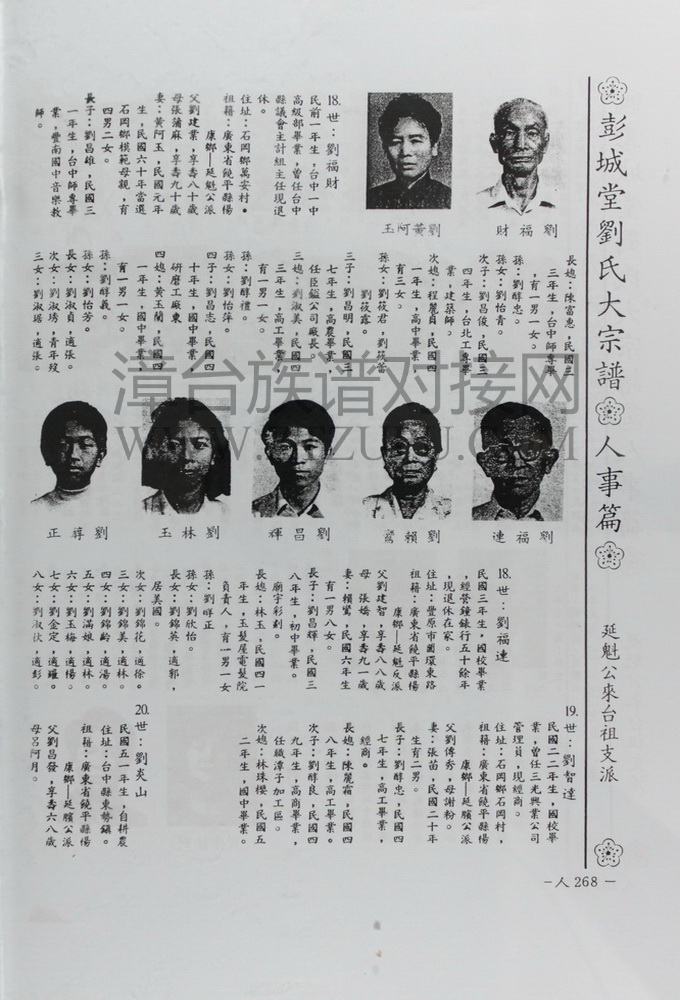 彭城堂劉氏大宗譜 人事篇 延魁公來台祖支派
劉福財
劉黃阿玉
18.世：劉福財
民前一年生，台中一中
高級部畢業，曾任台中
縣議會主計組主任現退
休。
住址：石岡鄉萬安村。
祖籍：廣東省饒平縣楊
康鄉—延魁公派
父劉建業，享壽八十歲
母張蒲麻，享壽九十歲
妻：黃阿玉，民國元年
生，民國六十年當選
石岡鄉模範母親，育
四男二女。
長子：劉昌雄，民國三
一年生，台中師專畢
業，豐南國中音樂教
師。
長媳：陳富惠，民國三
三年生，台中師專畢
，育一男一女。
孫：劉醇忠。
孫女：劉怡青。
次子：劉昌俊，民國三
四年生，台北工專畢
業，建築師。
次媳：程麗員，民國四
一年生，高中畢業，
育三女。
孫女：劉筱君，劉筱蕾
劉筱露。
三子：劉昌明，民國三
七年生，高農畢業，
任臣鎰公司廠長。
三媳：劉淑美，民國四
三年生，高工畢業，
育一男一女。
孫：劉醇禮。
孫女：劉怡萍。
四子：劉昌志，民國四
十年生，國中畢業，
研磨工廠東
四媳：黃玉蘭，民國四
一年生，國中畢業，
育一男一女。
孫：劉醇義。
孫女：劉怡芳。
長女：劉淑貞，適張。
次女：劉淑琇，青年歿
三女：劉淑瑶，適張。
劉福連
劉賴
劉昌輝
劉林玉
劉醇正
18.世：劉福連
民國三年生，國校畢業
，經營鐘錶行五十餘年
，現退休在家。
住址：豐原市圓環東路
祖籍：廣東省饒平縣楊
康鄉—延魁公派
父劉建智，享壽八八歲
母張嬌，享壽九一歲
妻：賴，民國六年生
育一男八女。
長子：劉昌輝，民國三
八年生，初中畢業。
廟宇彩刻。
長媳：林玉，民國四一
年生，玉髮屋電髮院
負責人，育一男一女
孫：劉醇正
孫女：劉欣怡。
長女：劉錦英，適郭，
居美國。
次女：劉錦花，適徐。
三女：劉錦美，適林。
四女：劉錦齡，適湯。
五女：劉滿娘，適林。
六女：劉玉梅，適楊。
七女：劉金定，適羅。
八女：劉淑，適彭。
19.世：劉智達
民國二二年生，國校畢
業，曾任三光興業公司
管理員，現經商。
住址：石岡鄉石岡村，
祖籍：廣東省饒平縣楊
康鄉—延臏公派
父劉傳秀，母謝粉。
妻：張苗，民國二十年
生育二男。
長子：劉醇忠，民國四
七年生，高工畢業，
經商。
長媳：陳麗霜，民國四
八年生，高工畢業。
次子：劉醇良，民國四
九年生，高商畢業，
任職潭子加工區。
次媳：林珠櫻，民國五
二年生，國中畢業。
20.世：劉炎山
民國五一年生，自耕農
住址：台中縣東勢鎮。
祖籍：廣東省饒平縣楊
康鄉—延臏公派
父劉昌發，享壽六八歲
母呂阿月。
－人268－
漳台族谱对接网
WWW.ZTZUPU.COM